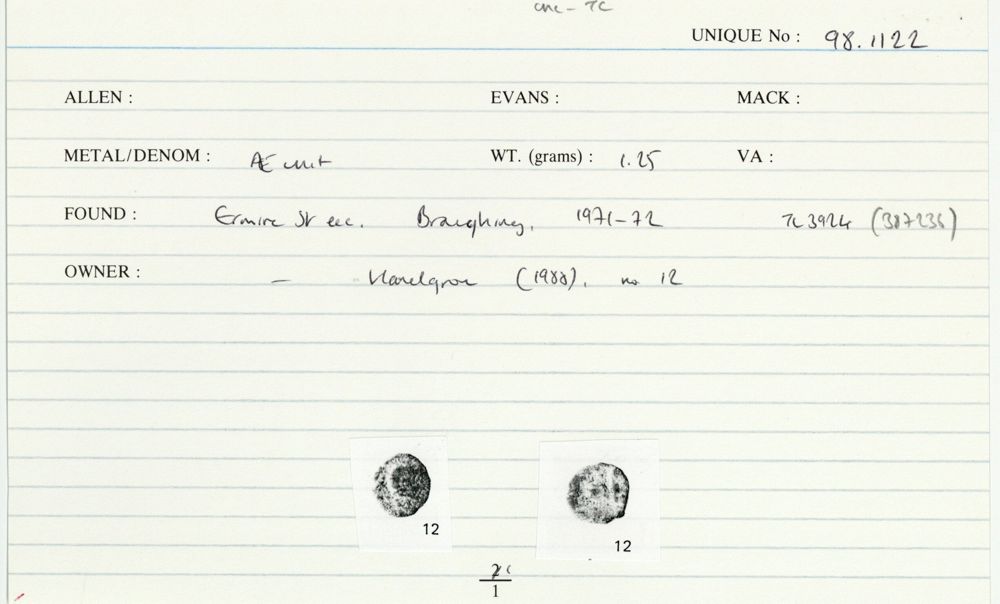 UNIQUE No : 98.1122
ALLEN : EVANS : MACK :
METAL/DENOM : Æ unit WT. (grams) : 1.25 VA :
FOUND : Ermine St exc. Braughing, 1971-72 TL 3924 (387236)
OWNER : — Haselgrove (1988), no 12
12 12
1